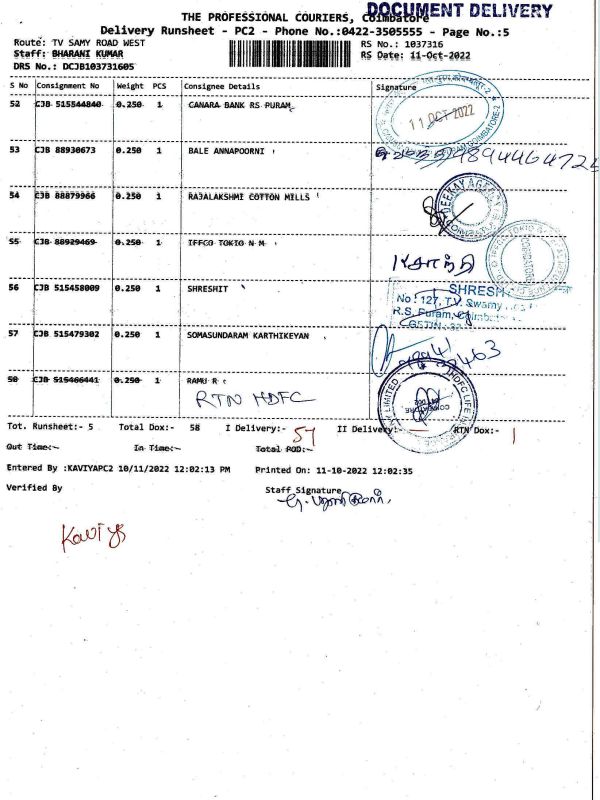 DOCUMENT DELIVERY
THE PROFESSIONAL COURIERS, Coimbatore
Delivery Runsheet - PC2 - Phone No.:0422-3505555 - Page No.:5
Route: TV SAMY ROAD WEST RS No.: 1037316
Staff: BHARANI KUMAR RS Date: 11-Oct-2022
DRS No.: DCJB103731605
S No Consignment No Weight PCS Consignee Details Signature
52 CJB 515544840 0.250 1 CANARA BANK RS PURAM
11 OCT 2022
53 CJB 88930673 0.250 1 BALE ANNAPOORNI
54 CJB 88879966 0.250 1 RAJALAKSHMI COTTON MILLS
55 CJB 88929469 0.250 1 IFFCO TOKIO N M
சாந்தி
56 CJB 515458009 0.250 1 SHRESHIT
SHRESH
No : 127, T.V. Swamy
R.S. Puram, Coimbat
GSTIN : 33
57 CJB 515479302 0.250 1 SOMASUNDARAM KARTHIKEYAN
58 CJB 515466441 0.250 1 RAMU R
RTN HDFC
HDFC LIFE LIMITED COIMBATORE
Tot. Runsheet:- 5 Total Dox:- 58 I Delivery:- 57 II Delivery:- RTN Dox:- 1
Out Time:- In Time:- Total POD:-
Entered By :KAVIYAPC2 10/11/2022 12:02:13 PM Printed On: 11-10-2022 12:02:35
Verified By Staff Signature
Kaviya